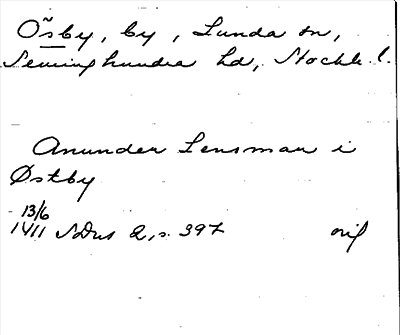 Õsby, by, Lunda sn,
Seminghundra hd, Stockh. l.
Anunder Lensman i
Østby
13/6
1411 SDns 2, s. 397 orig